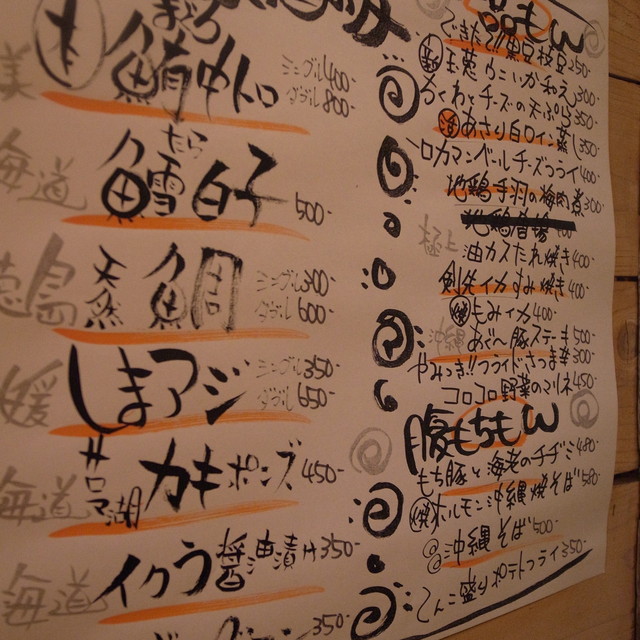 まぐろ
本鮪中トロ シングル400- ダブル800-
海道
たら
鱈白子 500-
徳島
天然鯛 シングル300- ダブル600-
媛
しまアジ シングル350- ダブル650-
海道
サロマ湖カキポンズ 450-
海道
イクラ醤油漬け 350-
350-
一品もん
250-
300-
ちくわとチーズの天ぷら 350-
あさり白ワイン蒸し 350-
ロカマンベールチーズフライ 400-
地鶏手羽の梅肉煮 300-
極上
油カスたれ焼き 400-
剣先イカすみ焼き 400-
もみイカ 400-
沖縄
あぐー豚ステーキ 500-
やみつき!!フライドさつま芋 300-
コロコロ野菜のピクルス 450-
腹もちもん
もち豚と海老のチヂミ 480-
ホルモン沖縄焼そば 580-
沖縄そば 500-
てんこ盛りポテトフライ 350-